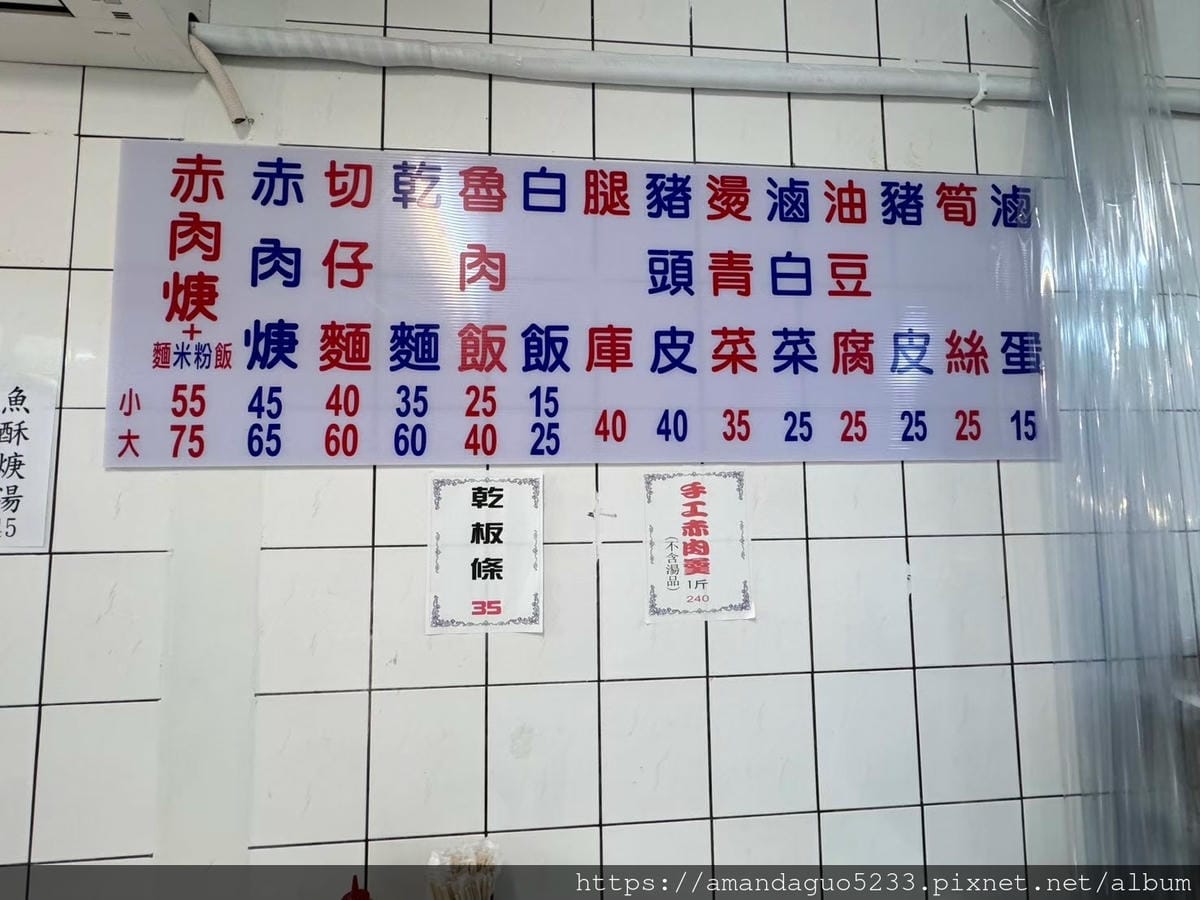 赤肉焿+麵米粉飯 小55 大75
赤肉焿 45 65
切仔麵 40 60
乾麵 35 60
魯肉飯 25 40
白飯 15 25
腿庫 40
豬頭皮 40
燙青菜 35
滷白菜 25
油豆腐 25
豬皮 25
筍絲 25
滷蛋 15
魚酥焿湯
乾板條 35
手工赤肉羹 1斤 240
(不含湯品)
https://amandaguo5233.pixnet.net/album